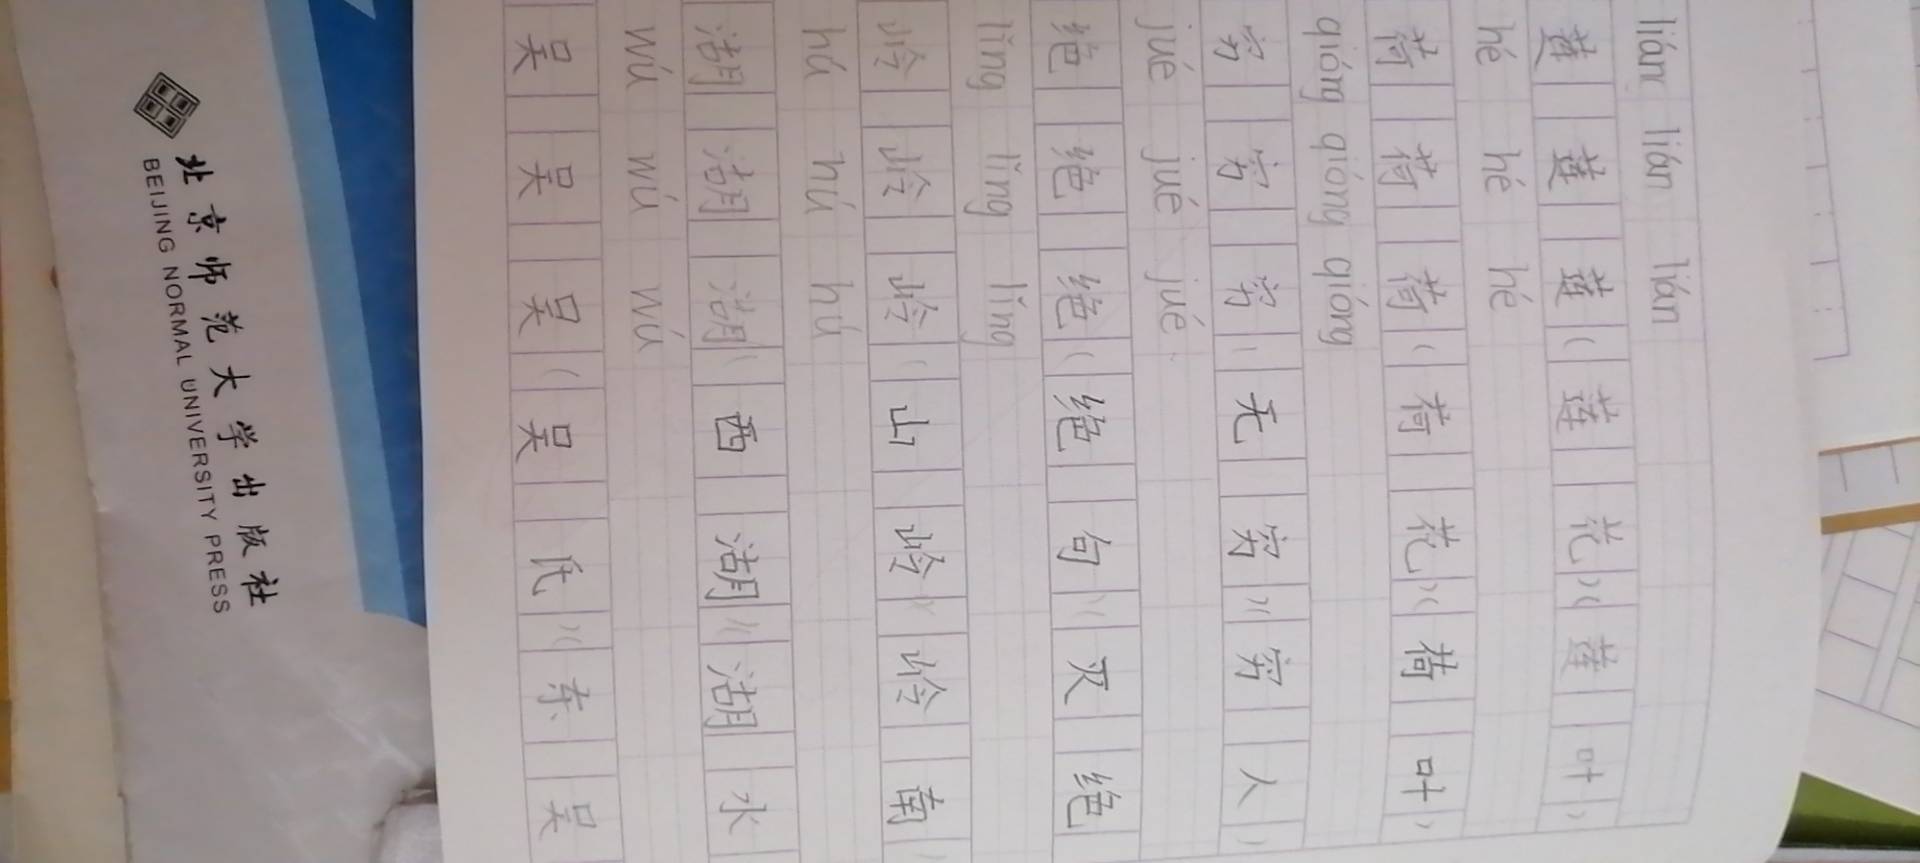 lián lián lián
莲 莲 莲 (莲 花) (莲 叶)
hé hé hé
荷 荷 荷 (荷 花) (荷 叶)
qióng qióng qióng
穷 穷 穷 (无 穷) (穷 人)
jué jué jué
绝 绝 绝 (绝 句) (灭 绝
lǐng lǐng lǐng
岭 岭 岭 (山 岭) (岭 南)
hú hú hú
湖 湖 湖 (西 湖) (湖 水
wú wú wú
吴 吴 吴 (吴 氏) (东 吴
北京师范大学出版社
BEIJING NORMAL UNIVERSITY PRESS